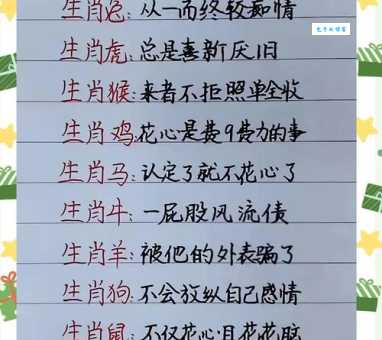 生肖兔:从一而终较痴情
生肖虎:总是喜新厌旧
生肖猴:来者不拒照单全收
生肖鸡:花心是费9费力的事
生肖马:认定了就不花心了
生肖牛:一屁股风流债
生肖羊:被他的外表骗了
生肖狗:不会放纵自己感情
生肖鼠:不仅花心且花花肠